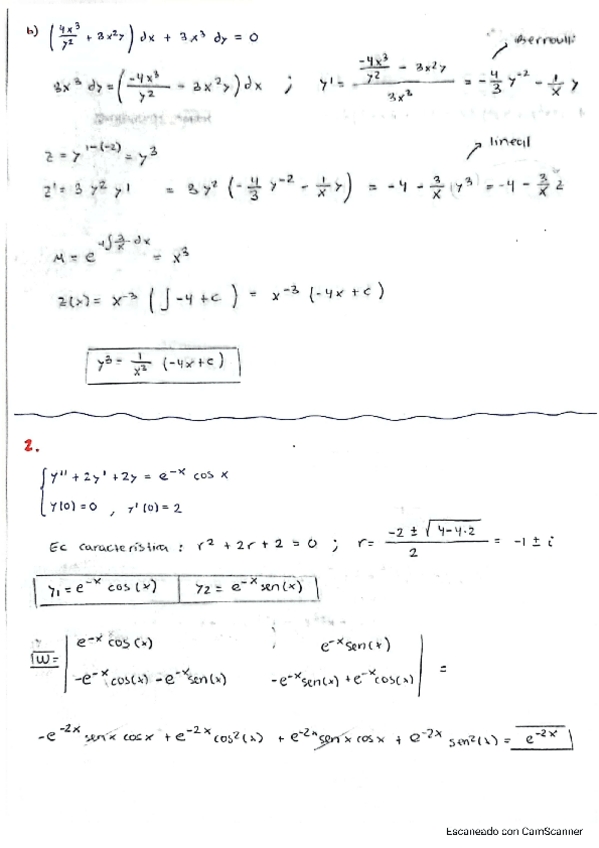 b) (4x³/y² + 3x²y) dx + 3x³ dy = 0
Bernoulli
3x³ dy = (-4x³/y² - 3x²y) dx ; y' = (-4x³/y² - 3x²y)/3x³ = -4/3 y⁻² - 1/x y
lineal
z = y^(1-(-2)) = y³
z' = 3 y² y' = 3y² (-4/3 y⁻² - 1/x y) = -4 - 3/x y³ = -4 - 3/x z
= x³
z(x) = x⁻³ (∫ -4 + c) = x⁻³ (-4x + c)
y³ = 1/x² (-4x + c)
2.
{ y'' + 2y' + 2y = e⁻ˣ cos x
y(0) = 0 , y'(0) = 2
Ec característica : r² + 2r + 2 = 0 ; r = (-2 ± √(4-4·2))/2 = -1 ± i
y₁ = e⁻ˣ cos(x) | y₂ = e⁻ˣ sen(x)
W = | e⁻ˣ cos(x) ; e⁻ˣ sen(x) |
| -e⁻ˣ cos(x) - e⁻ˣ sen(x) -e⁻ˣ sen(x) + e⁻ˣ cos(x) | =
-e⁻²ˣ sen x cos x + e⁻²ˣ cos²(x) + e⁻²ˣ sen x cos x + e⁻²ˣ sen²(x) = e⁻²ˣ
Escaneado con CamScanner